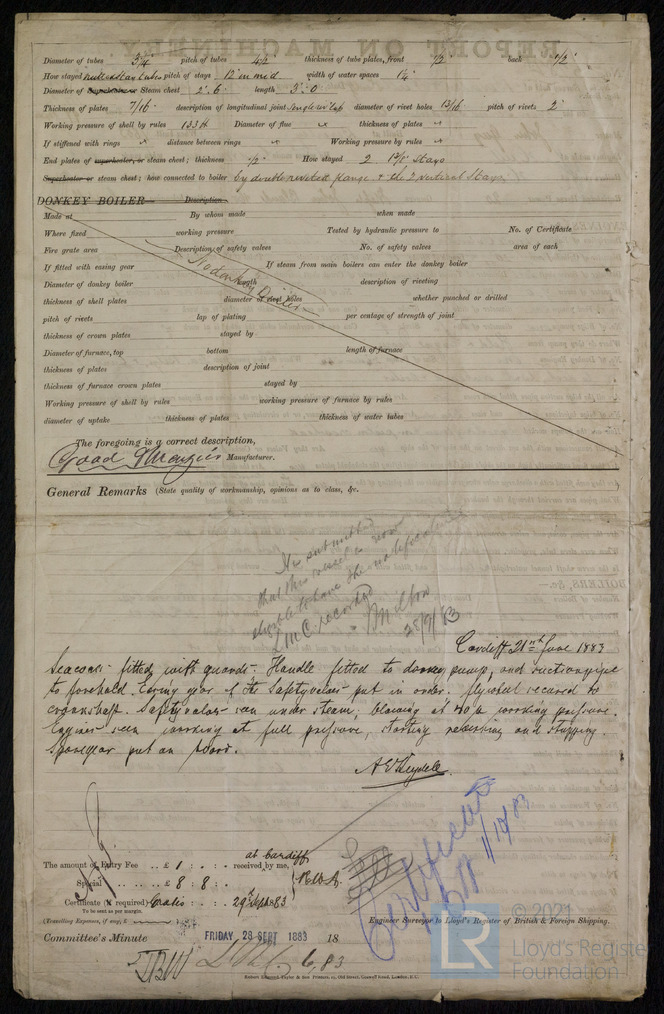 Diameter of tubes 3¼ pitch of tubes 4½ thickness of tube plates, front ½" back ½"
How stayed pitch of stays 12" in mid. width of water spaces 1¼
Diameter of Superheater or Steam chest 2'. 6" length 3'. 0"
Thickness of plates 7/16" description of longitudinal joint Single riv lap diameter of rivet holes 13/16 pitch of rivets 2"
Working pressure of shell by rules 133 Diameter of flue × thickness of plates ×
If stiffened with rings × distance between rings × Working pressure by rules ×
End plates of superheater, or steam chest; thickness ½" How stayed 2 Stays
Superheater or steam chest; how connected to boiler by double riveted flange & the 2 vertical Stays
DONKEY BOILER— Description
Made at By whom made when made
Where fixed working pressure Tested by hydraulic pressure to No. of Certificate
Fire grate area Description of safety valves No. of safety valves area of each
If fitted with easing gear If steam from main boilers can enter the donkey boiler
No donkey Boiler
Diameter of donkey boiler length description of riveting
thickness of shell plates diameter of rivet holes whether punched or drilled
pitch of rivets lap of plating per centage of strength of joint
thickness of crown plates stayed by
Diameter of furnace, top bottom length of furnace
thickness of plates description of joint
thickness of furnace crown plates stayed by
Working pressure of shell by rules working pressure of furnace by rules
diameter of uptake thickness of plates thickness of water tubes
The foregoing is a correct description,
Good & Menzies Manufacturer.
General Remarks (State quality of workmanship, opinions as to class, &c.
It is submitted
that this vessel is now
eligible to have the notification
L.M.C. recorded
Milton
28/9/83
Cardiff 21st June 1883
Seacocks fitted with guards. Handle fitted to donkey pump, and suction pipe
to forehold. Easing gear of the Safety valves put in order. Flywheel secured to
crankshaft. Safety valves seen under steam, blowing at working pressure.
Engines seen working at full pressure, starting reversing and stopping.
Spare gear put on board.
Certificate
1/10/83
The amount of Entry Fee .. £ 1 : . : . received by me,
at Cardiff
Special .. £ 8 : 8 : .
Certificate (if required) Gratis : . 29th Sept 1883
To be sent as per margin.
(Travelling Expenses, if any, £ )
Engineer Surveyor to Lloyd's Register of British & Foreign Shipping.
Committee's Minute FRIDAY 28 SEPT 1883 18
LMC 6,83
© 2021
LR
Lloyd's Register
Foundation